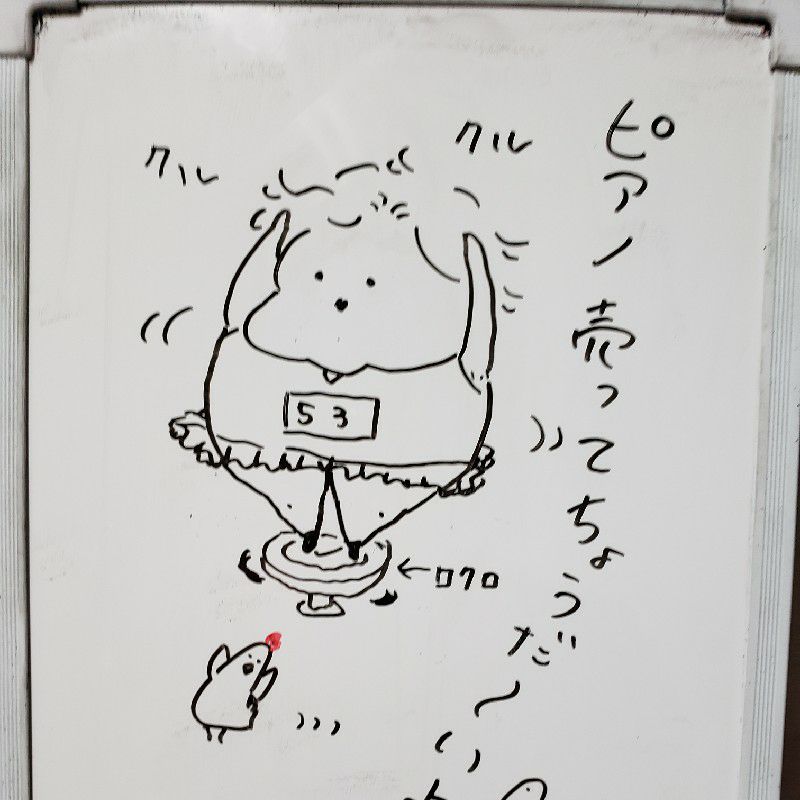 ピアノ売ってちょうだ〜い
クル
クル
53
←ロクロ